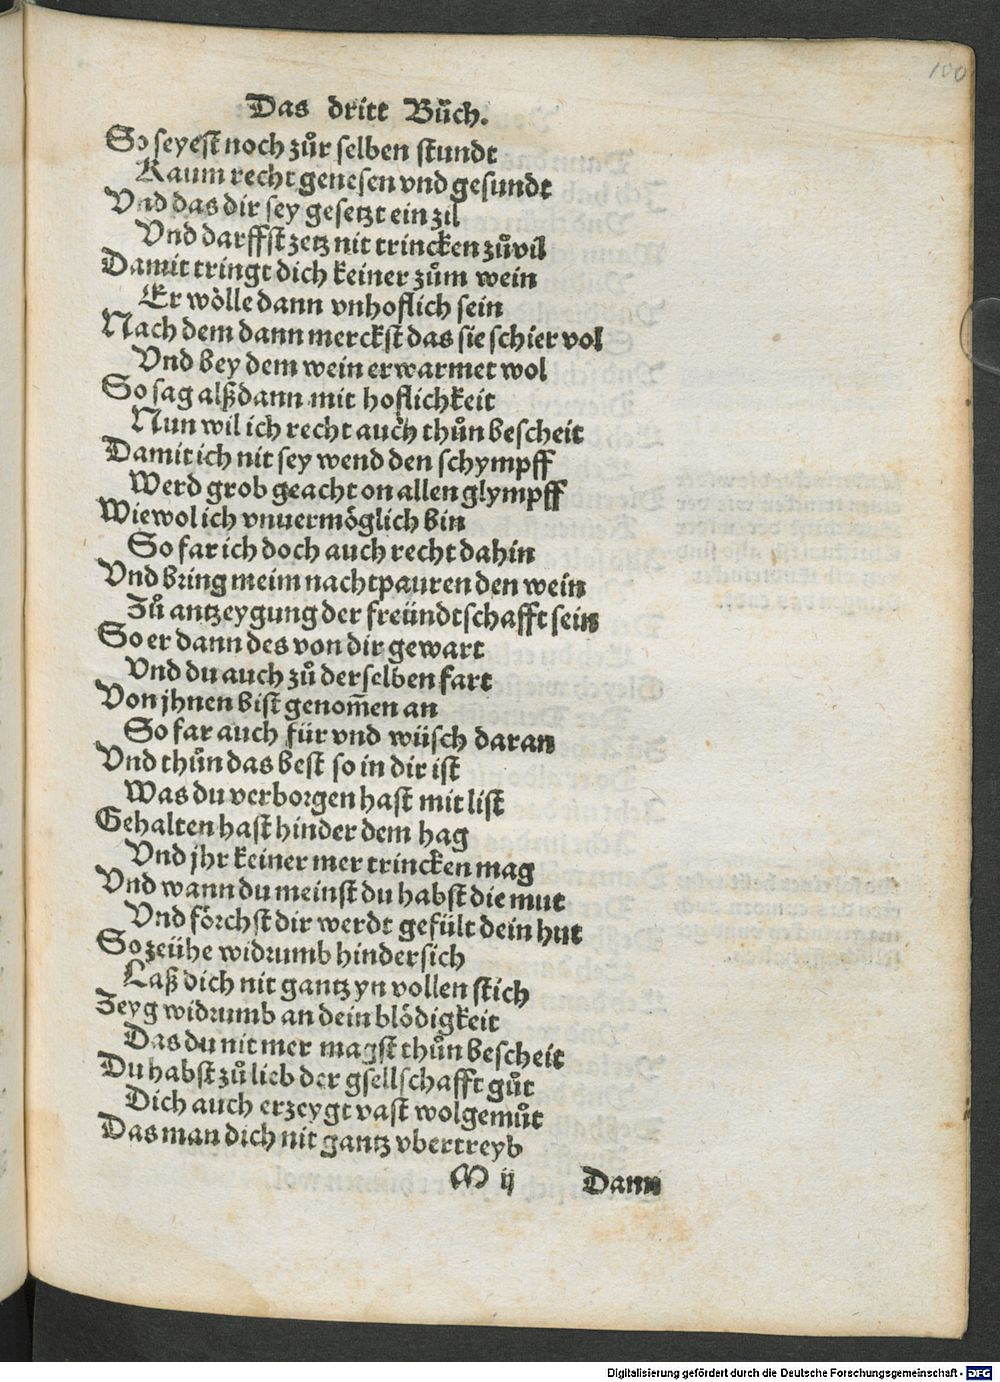 100
Das dritt Bůch.
So seyest noch zůr selben stundt
Kaum recht genesen vnd gesundt
Vnd das dir sey gesetzt ein zil
Vnd darffst zetz nit trincken zůvil
Damit tringt dich keiner zům wein
Er wölle dann vnhoflich sein
Nach dem dann merckst das sie schier vol
Vnd bey dem wein erwarmet wol
So sag alßdann mit hoflichkeit
Nun wil ich recht auch thůn bescheit
Damit ich nit sey wend den schympff
Werd grob geacht on allen glympff
Wiewol ich vnuermöglich bin
So far ich doch auch recht dahin
Vnd bring meim nachtpauren den wein
Zů antzeygung der freündtschafft sein
So er dann des von dir gewart
Vnd du auch zů derselben fart
Von jhnen bist genom̄en an
So far auch für vnd wüsch daran
Vnd thůn das best so in dir ist
Was du verborgen hast mit list
Gehalten hast hinder dem hag
Vnd jhr keiner mer trincken mag
Vnd wann du meinst du habst die mut
Vnd förchst dir werdt gefült dein hut
So zeühe widrumb hindersich
Laß dich nit gantz yn vollen stich
Zeyg widrumb an dein blödigkeit
Das du nit mer magst thůn bescheit
Du habst zů lieb der gsellschafft gůt
Dich auch erzeygt vast wolgemůt
Das man dich nit gantz vbertreyb
M ij Dann
Digitalisierung gefördert durch die Deutsche Forschungsgemeinschaft - DFG